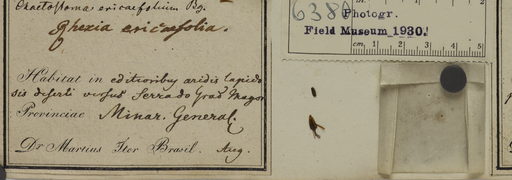 Chaetostoma ericaefolium Pg.
Rhexia ericaefolia.
Habitat in editioribus aridis lapido
sis deserti versus Serra do Grao Magor
Provinciae Minar. General.
Dr Martius Iter Brasil. Aug.
6380
Photogr.
Field Museum 1930.
cm 1 2 3 4 5